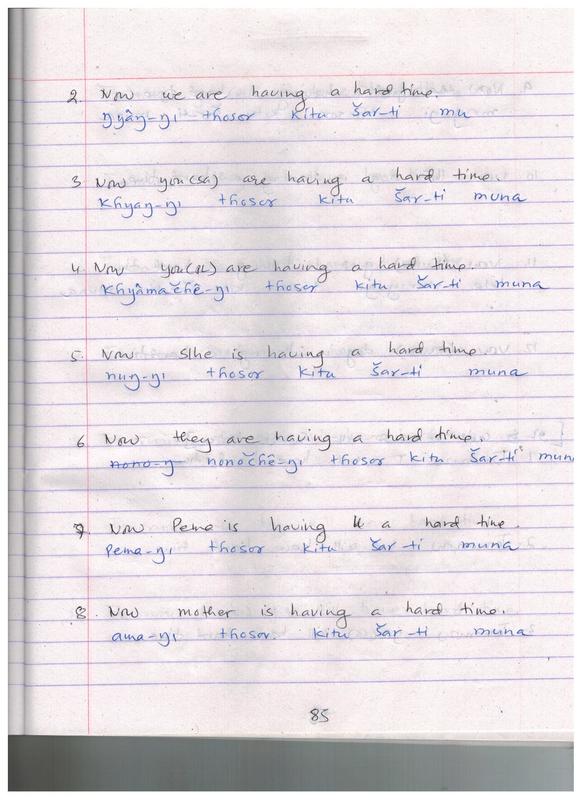 2. Now we are having a hard time.
ŋyâŋ-ŋı thosor kitu šar-ti mu
3 Now you(SG) are having a hard time.
Khyaŋ-ŋı thosor kitu šar-ti muna
4. Now you(PL) are having a hard time.
Khyâmačhê-ŋı thosor kitu šar-ti muna
5. Now S/he is having a hard time
nuŋ-ŋı thosor kitu šar-ti muna
6 Now they are having a hard time.
nono-ŋ nonočhê-ŋı thosor kitu šar-ti mun
7. Now Pema is having a hard time.
Pema-ŋı thosor kitu šar-ti muna
8. Now mother is having a hard time.
ama-ŋı thosor kitu šar-ti muna
85